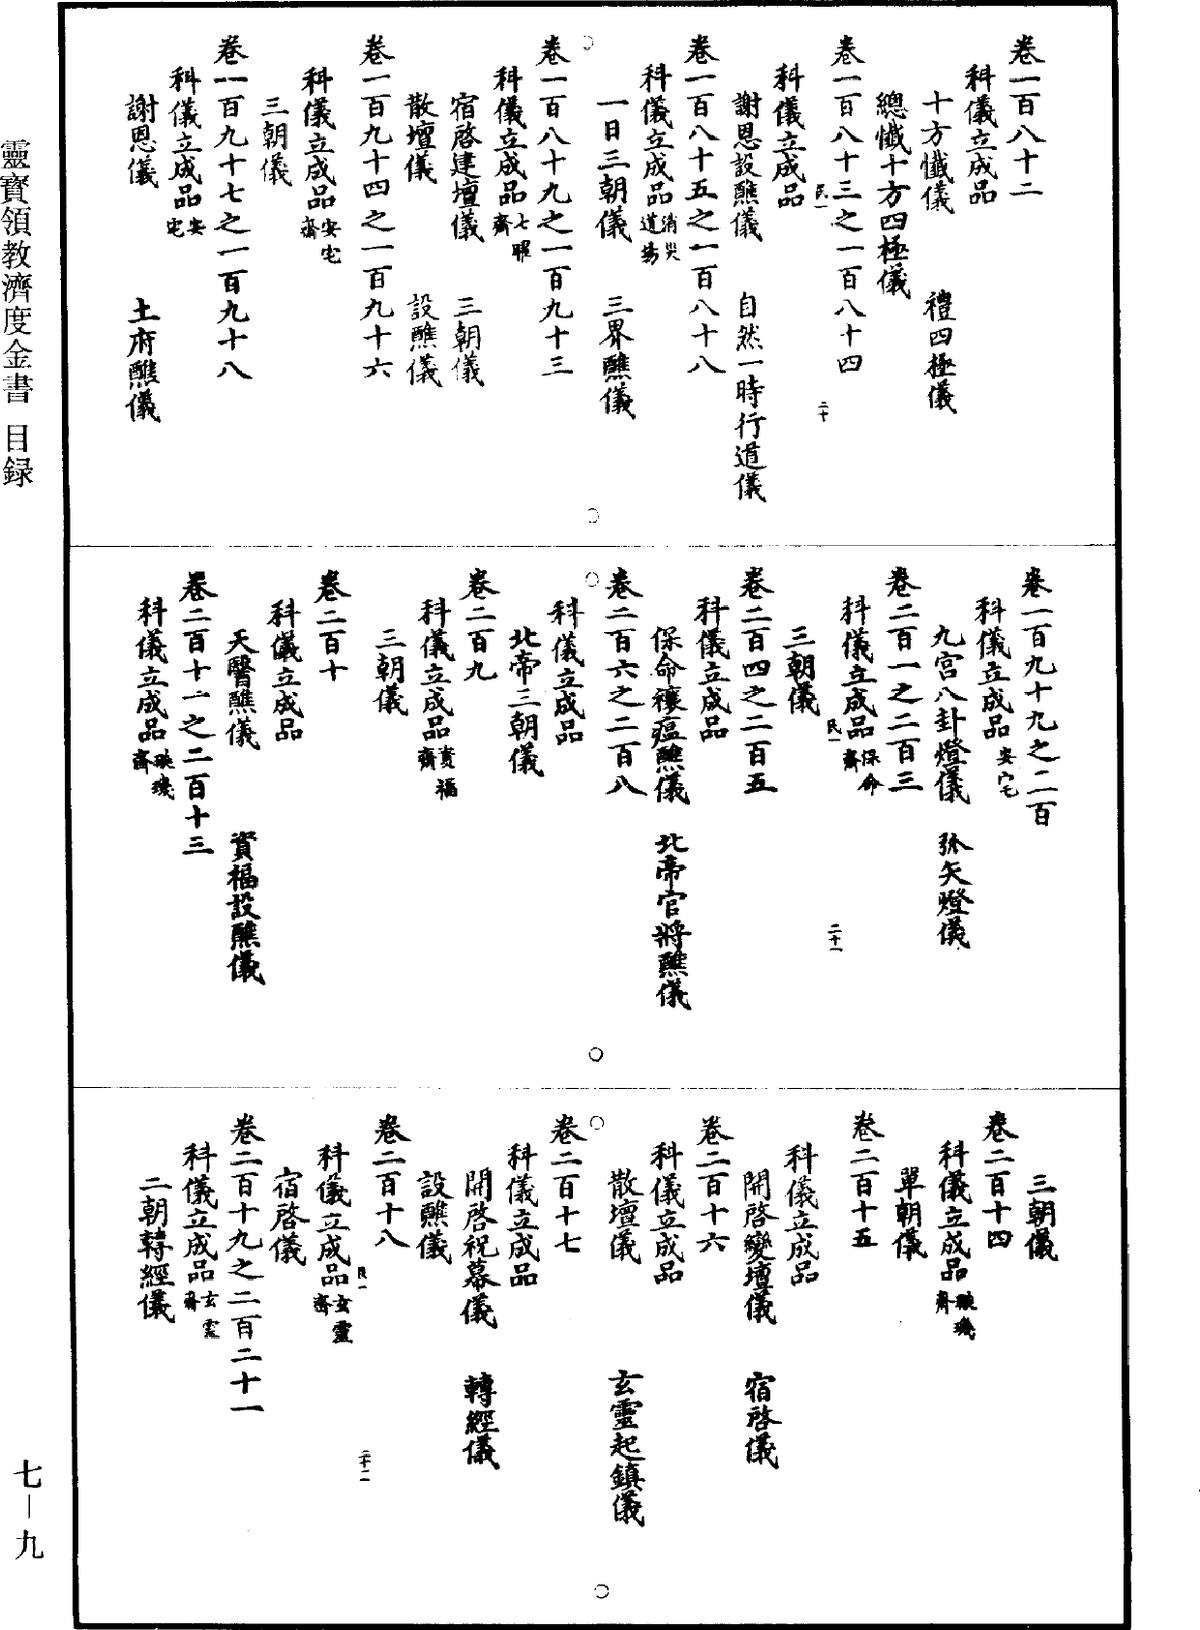 卷一百八十二
科儀立成品
十方懺儀　禮四極儀
總懺十方四極儀
卷一百八十三之一百八十四
民一　二十
科儀立成品
謝恩設醮儀　自然一時行道儀
卷一百八十五之一百八十八
科儀立成品消災道場
一日三朝儀　三界醮儀
卷一百八十九之一百九十三
科儀立成品七曜齋
宿啓建壇儀　三朝儀
散壇儀　設醮儀
卷一百九十四之一百九十六
科儀立成品安宅齋
三朝儀
卷一百九十七之一百九十八
科儀立成品安宅
謝恩儀　土府醮儀
卷一百九十九之二百
科儀立成品安宅
九宮八卦燈儀　弥矢燈儀
卷二百一之二百三
科儀立成品保命齋
民一　二十一
三朝儀
卷二百四之二百五
科儀立成品
保命禳瘟醮儀　北帝官將醮儀
卷二百六之二百八
科儀立成品
北帝三朝儀
卷二百九
科儀立成品資福齋
三朝儀
卷二百十
科儀立成品
天醫醮儀　資福設醮儀
卷二百十一之二百十三
科儀立成品璇璣齋
三朝儀
卷二百十四
科儀立成品璇璣齋
單朝儀
卷二百十五
科儀立成品
開啓變壇儀　宿啓儀
卷二百十六
科儀立成品
散壇儀　玄靈起鎮儀
卷二百十七
科儀立成品
開啓祝幕儀　轉經儀
設醮儀
卷二百十八
民一　二十二
科儀立成品玄靈齋
宿啓儀
卷二百十九之二百二十一
科儀立成品玄靈齋
二朝轉經儀
靈寶領教濟度金書　目録
七—九